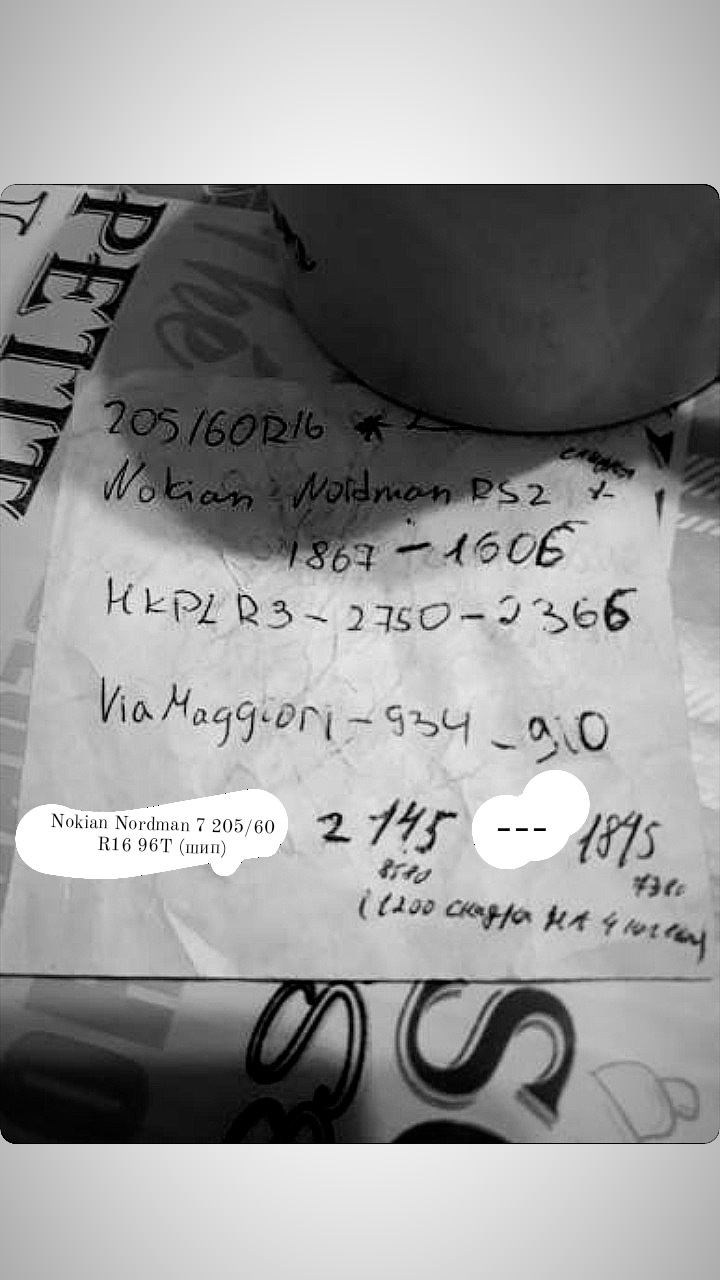 PETIT
The
205/60R16 *
скидка
Nokian Nordman RS2
1867 - 1606
HKPL R3 - 2750 - 2366
Via Maggiori - 934 - 910
Nokian Nordman 7 205/60
R16 96T (шип)
2145 --- 1845
8580 7380
(1200 скидка на 4 колеса)